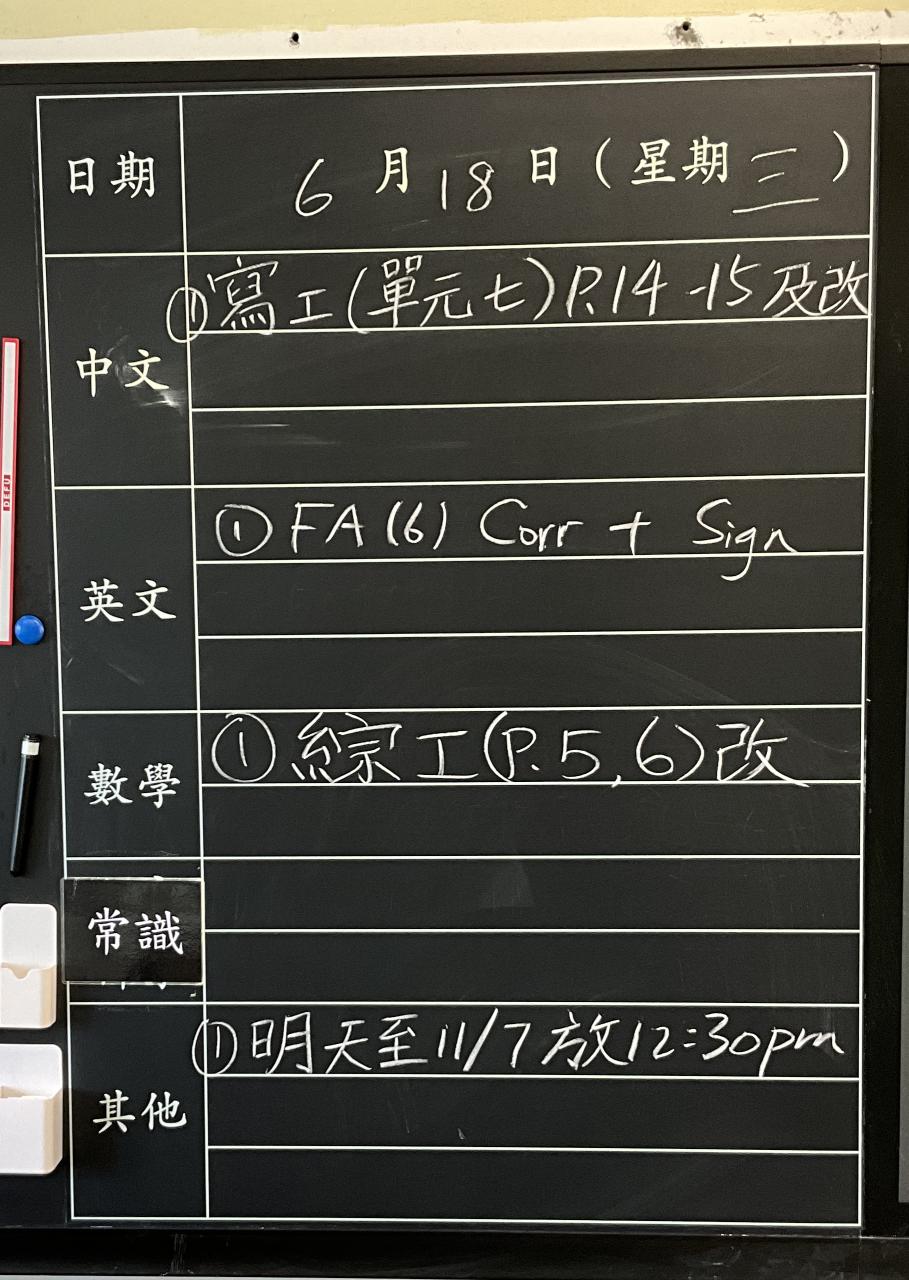 日期 6月18日(星期三)
中文 ①寫工(單元七)P.14-15及改
英文 ①FA(6) Corr + Sign
數學 ①綜工(P.5,6)改
常識
其他 ①明天至11/7放12:30pm
DEFU